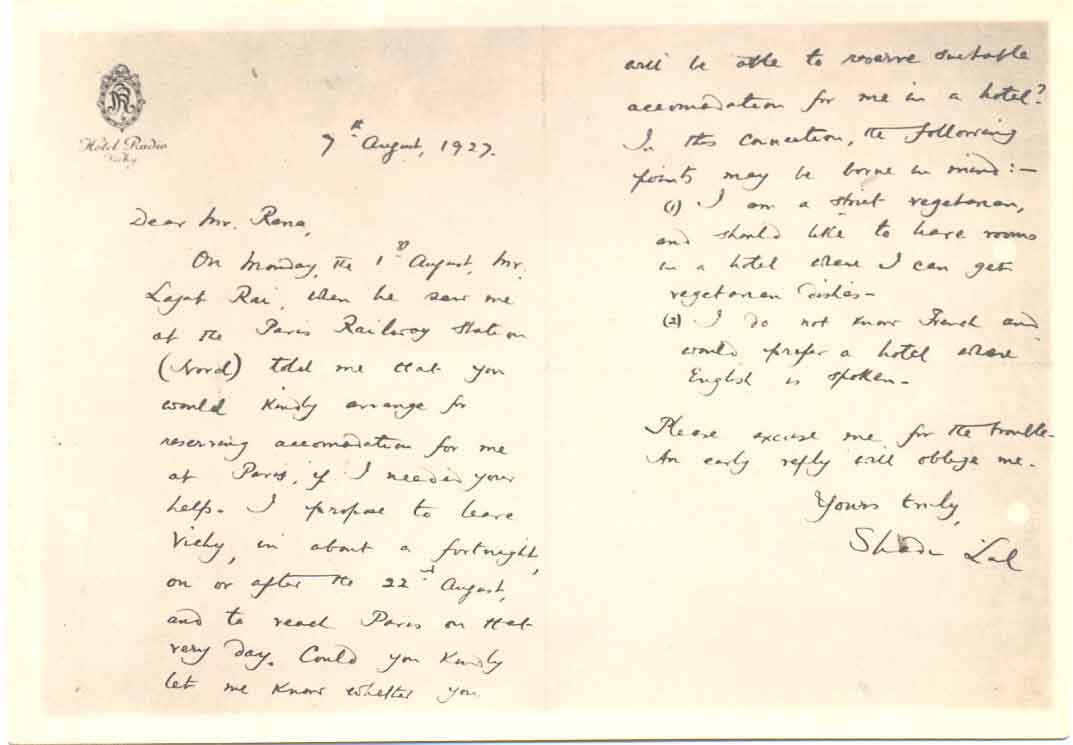 HR
Hotel Radio
Vichy
7th August, 1927.
Dear Mr. Rana,
On Monday, the 1st August, Mr.
Lajat Rai, when he saw me
at the Paris Railway Station
(Nord) told me that you
would kindly arrange for
reserving accomodation for me
at Paris, if I needed your
help. I propose to leave
Vichy, in about a fortnight,
on or after the 22nd August,
and to reach Paris on that
very day. Could you kindly
let me know whether you
will be able to reserve suitable
accomodation for me in a hotel?
In this connection, the following
points may be borne in mind:—
(1) I am a strict vegetarian,
and should like to have rooms
in a hotel where I can get
vegetarian dishes—
(2) I do not know French and
would prefer a hotel where
English is spoken—
Please excuse me for the trouble—
An early reply will oblige me—
Yours truly,
Shadi Lal